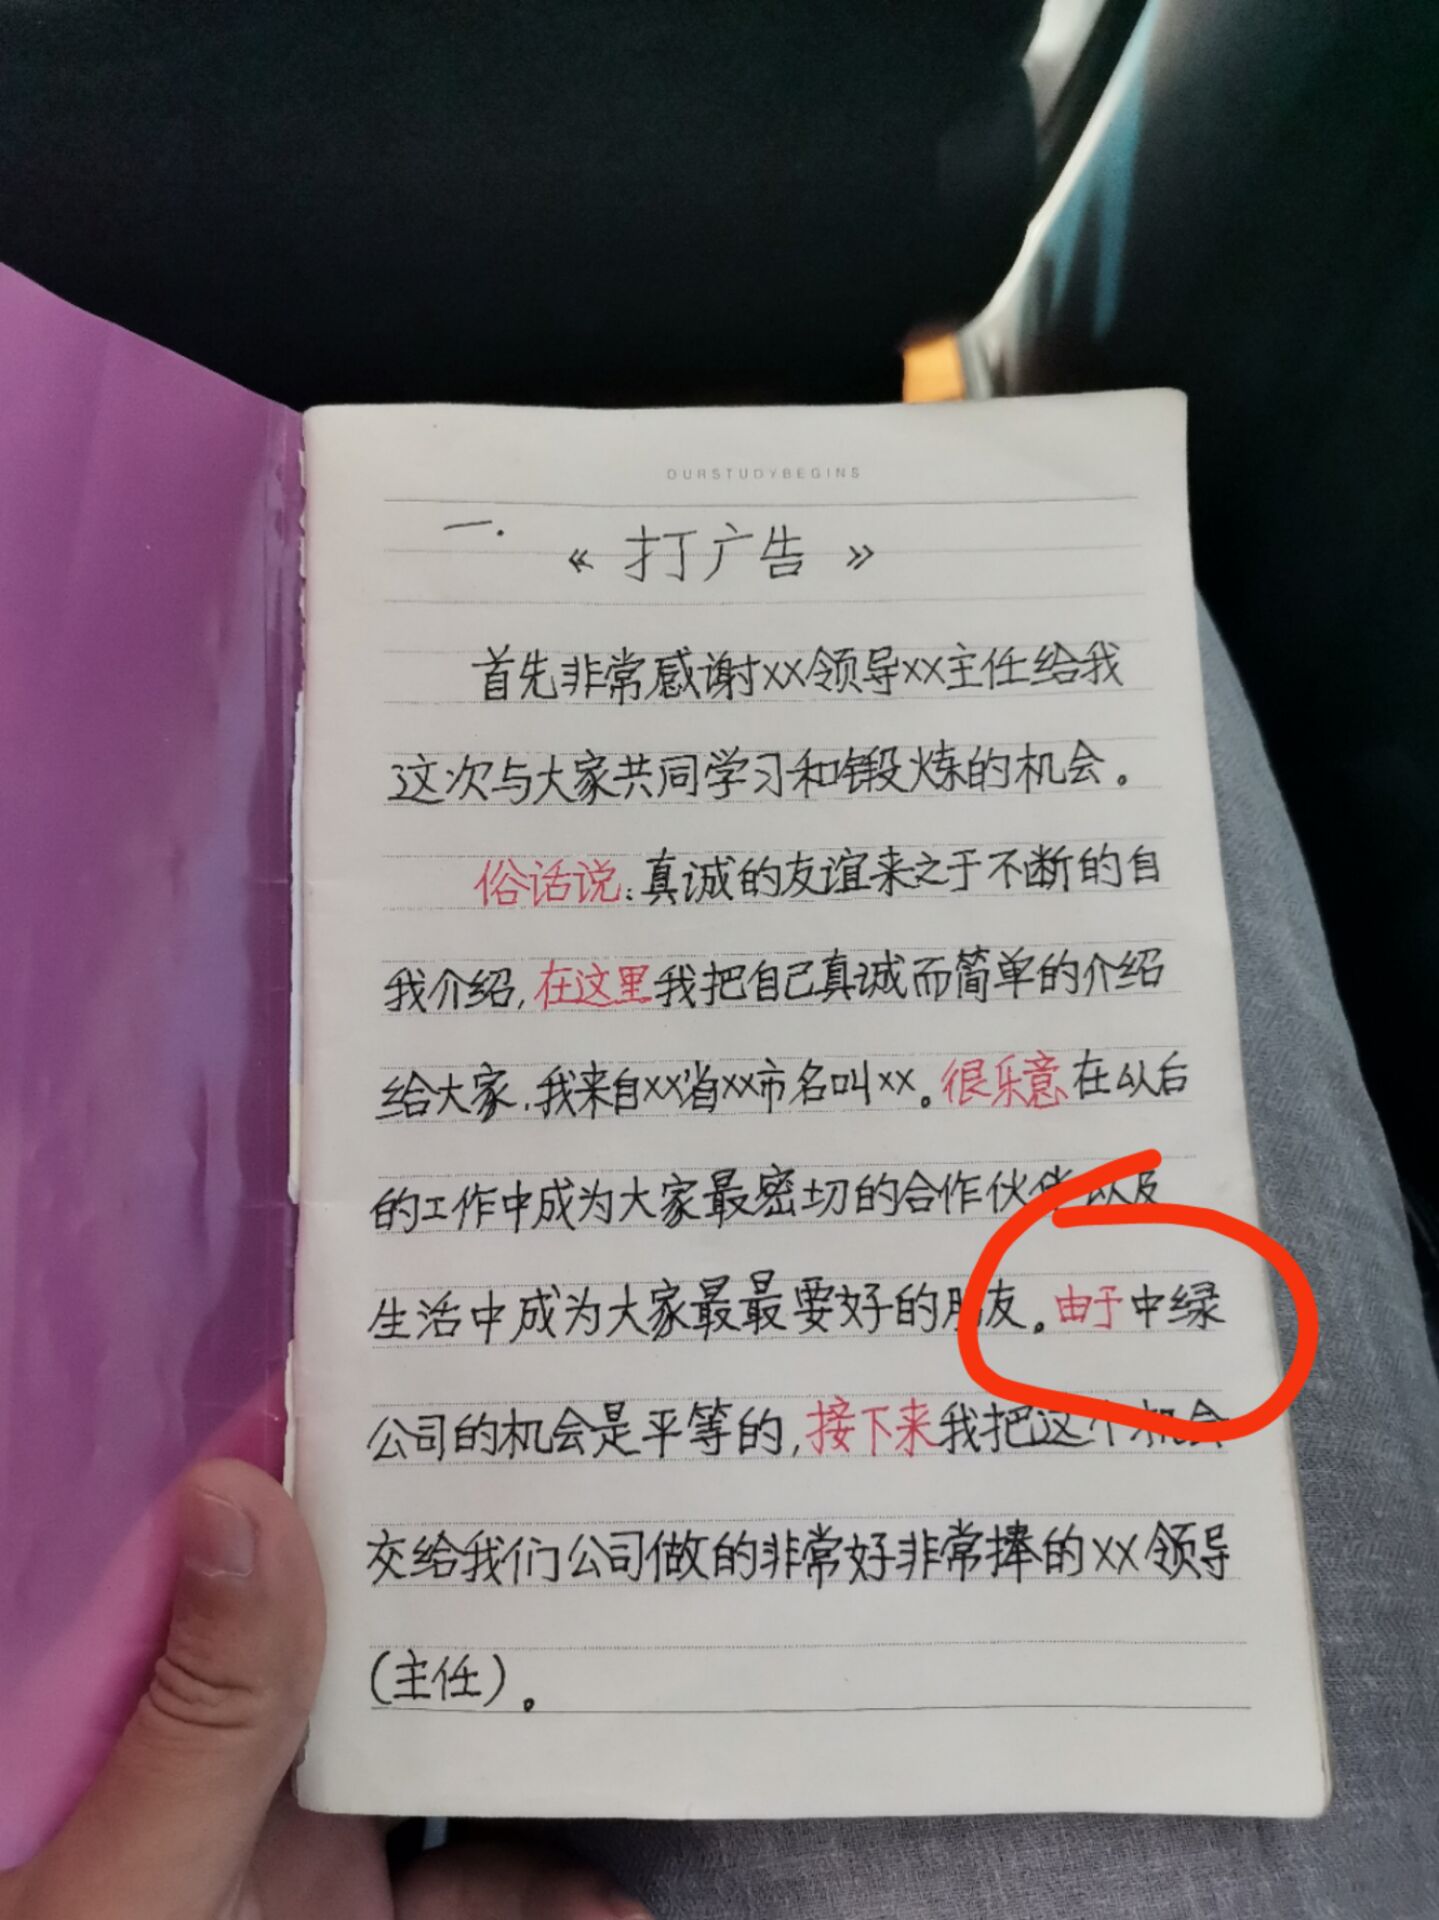 OURSTUDYBEGINS
一.
《打广告》
首先非常感谢xx领导xx主任给我
这次与大家共同学习和锻炼的机会。
俗话说:真诚的友谊来之于不断的自
我介绍,在这里我把自己真诚而简单的介绍
给大家,我来自xx省xx市名叫xx。很乐意在以后
的工作中成为大家最密切的合作伙伴以及
生活中成为大家最最要好的朋友。由于中绿
公司的机会是平等的,接下来我把这个机会
交给我们公司做的非常好非常捧的xx领导
(主任)。